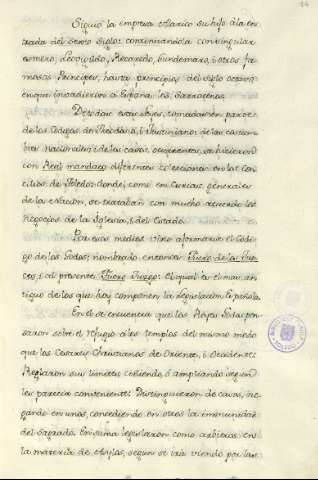 Siguió la empresa Alarico su hijo à la en
trada del sexto siglo: continuandola con singular
esmero, Leovigildo, Recaredo, Gundemaro, i otros fa
mosos Principes, hasta principios del siglo octavo,
en que invadieron à España los Sarracenos.
De todas estas Leyes, tomadas en parte
de los Codigos de Theodosio, i Justiniano: de las costum
bres nacionales: i de los casos ocurrentes, se hicieron
con Real mandato diferentes colecciones en los Con
cilios de Toledo: donde, como en Curias generales
de la Nacion, se trataban con mucho acuerdo los
Negocios de la Iglesia, i del Estado.
Por estos medios vino a formarse el Codi
go de los Godos; nombrado en comun Fuero de los Jue
ces, i al presente Fuero Juzgo: el qual es el mas an
tiguo de los que hoy componen la Legislacion Española.
En el se encuentra que los Reyes Godos pen
saron sobre el refugio a los templos del mismo modo
que los Cesares Christianos de Oriente, i Occidente:
Reglaron sus limites ciñendo, ò ampliando segun
les parecia conveniente: Distinguieron de casos, ne
gando en unos, concediendo en otros la inmunidad
del Sagrado. En suma legislaron como arbitros en
la materia de Asylos, segun se irà viendo por las